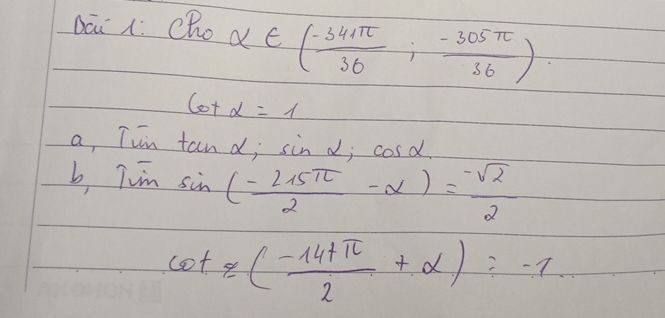 Bài 1: Cho α ∈ (-341π/36 ; -305π/36).
Cot α = 1
a, Tìm tan α; sin α; cos α.
b, Tìm sin (-215π/2 - α) = -√2/2
cot (-147π/2 + α) = -1.